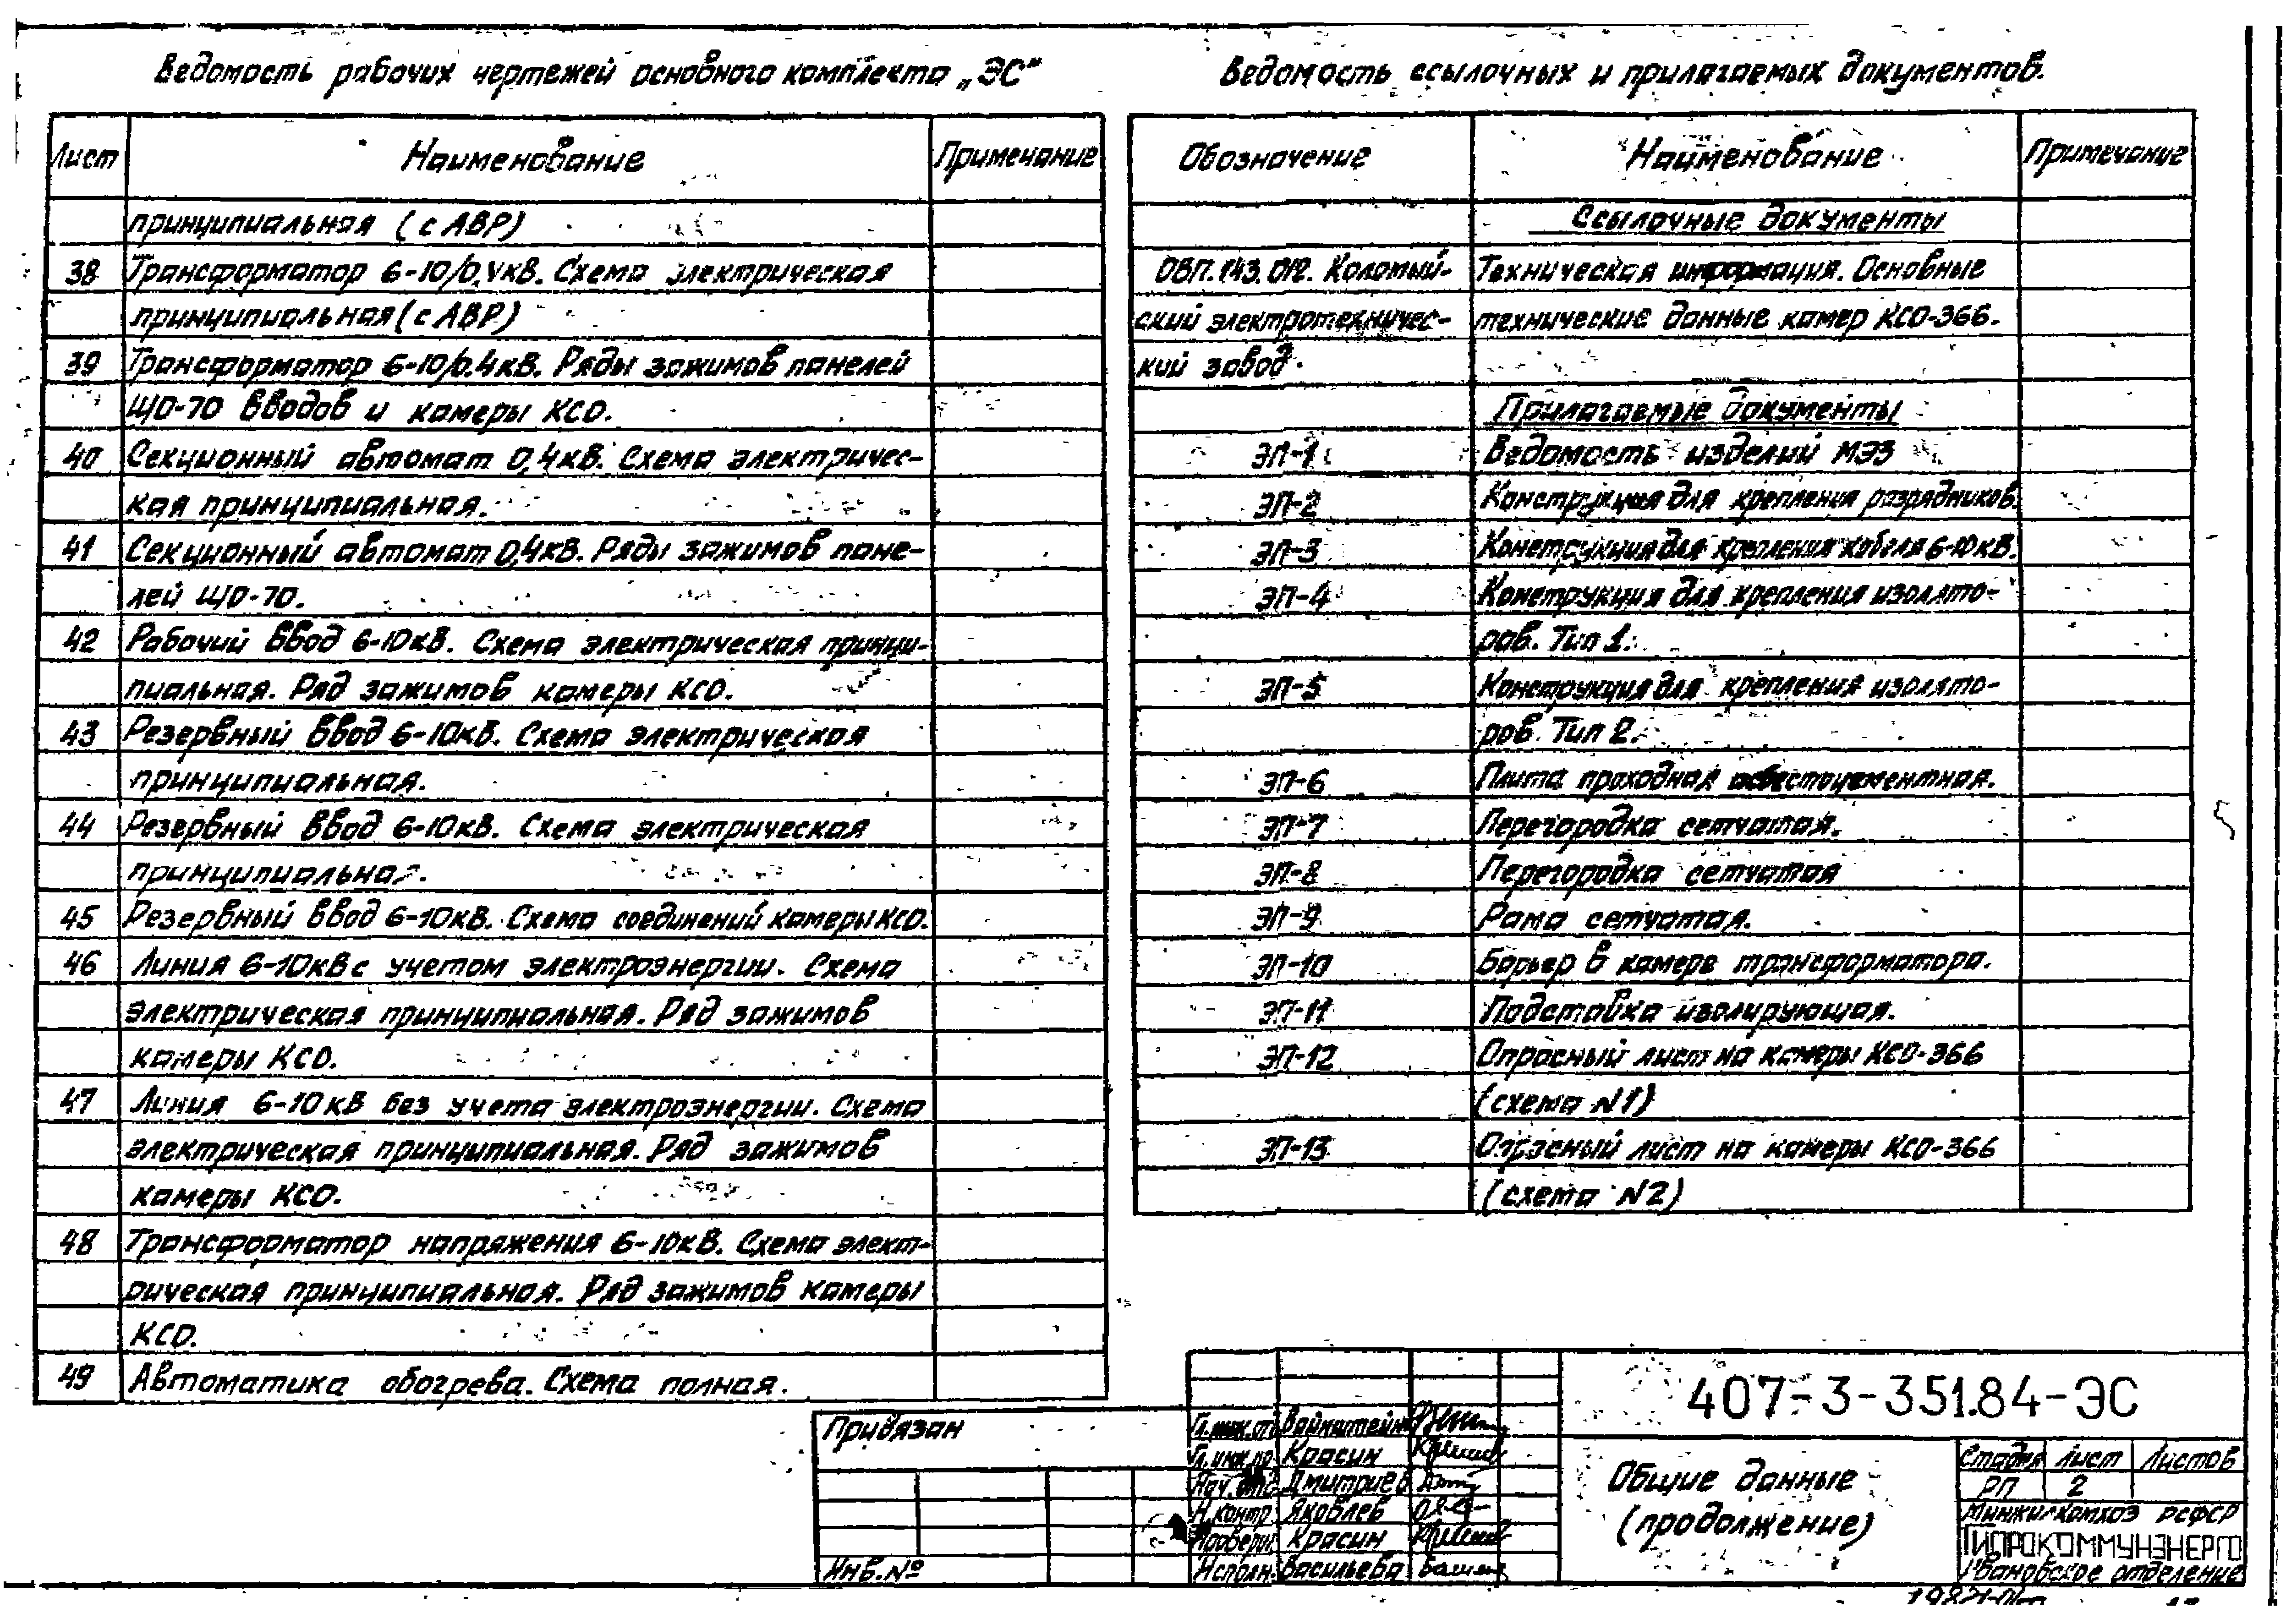 Ведомость рабочих чертежей основного комплекта „ЭС"
Лист Наименование Примечание
принципиальная (с АВР)
38 Трансформатор 6-10/0,4кВ. Схема электрическая
принципиальная (с АВР)
39 Трансформатор 6-10/0.4кВ. Ряды зажимов панелей
ЩО-70 вводов и камеры КСО.
40 Секционный автомат 0,4кВ. Схема электричес-
кая принципиальная.
41 Секционный автомат 0,4кВ. Ряды зажимов пане-
лей ЩО-70.
42 Рабочий ввод 6-10кВ. Схема электрическая принци-
пиальная. Ряд зажимов камеры КСО.
43 Резервный ввод 6-10кВ. Схема электрическая
принципиальная.
44 Резервный ввод 6-10кВ. Схема электрическая
принципиальная.
45 Резервный ввод 6-10кВ. Схема соединений камеры КСО.
46 Линия 6-10кВ с учетом электроэнергии. Схема
электрическая принципиальная. Ряд зажимов
камеры КСО.
47 Линия 6-10кВ без учета электроэнергии. Схема
электрическая принципиальная. Ряд зажимов
камеры КСО.
48 Трансформатор напряжения 6-10кВ. Схема элект-
рическая принципиальная. Ряд зажимов камеры
КСО.
49 Автоматика обогрева. Схема полная.
Ведомость ссылочных и прилагаемых документов.
Обозначение Наименование Примечание
Ссылочные документы
ОВП.143.012. Коломый- Техническая информация. Основные
ский электротехничес- технические данные камер КСО-366.
кий завод.
Прилагаемые документы
ЭП-1 Ведомость изделий МЭЗ
ЭП-2 Конструкция для крепления разрядников.
ЭП-3 Конструкция для крепления кабеля 6-10кВ.
ЭП-4 Конструкция для крепления изолято-
ров. Тип 1.
ЭП-5 Конструкция для крепления изолято-
ров Тип 2.
ЭП-6 Плита проходная асбестоцементная.
ЭП-7 Перегородка сетчатая.
ЭП-8 Перегородка сетчатая
ЭП-9 Рама сетчатая.
ЭП-10 Барьер в камере трансформатора.
ЭП-11 Подставка изолирующая.
ЭП-12 Опросный лист на камеры КСО-366
(схема N1)
ЭП-13 Опросный лист на камеры КСО-366
(схема N2)
Привязан
Инв.№
Гл.инж.от Вайнштейн
Гл.инж.пр Красин
Нач.отд Дмитриев
Н.контр Яковлев
Проверил Красин
Исполн. Васильева
407-3-351.84-ЭС
Общие данные
(продолжение)
Стадия Лист Листов
РП 2
Минжилкомхоз РСФСР
ГИПРОКОММУНЭНЕРГО
Ивановское отделение